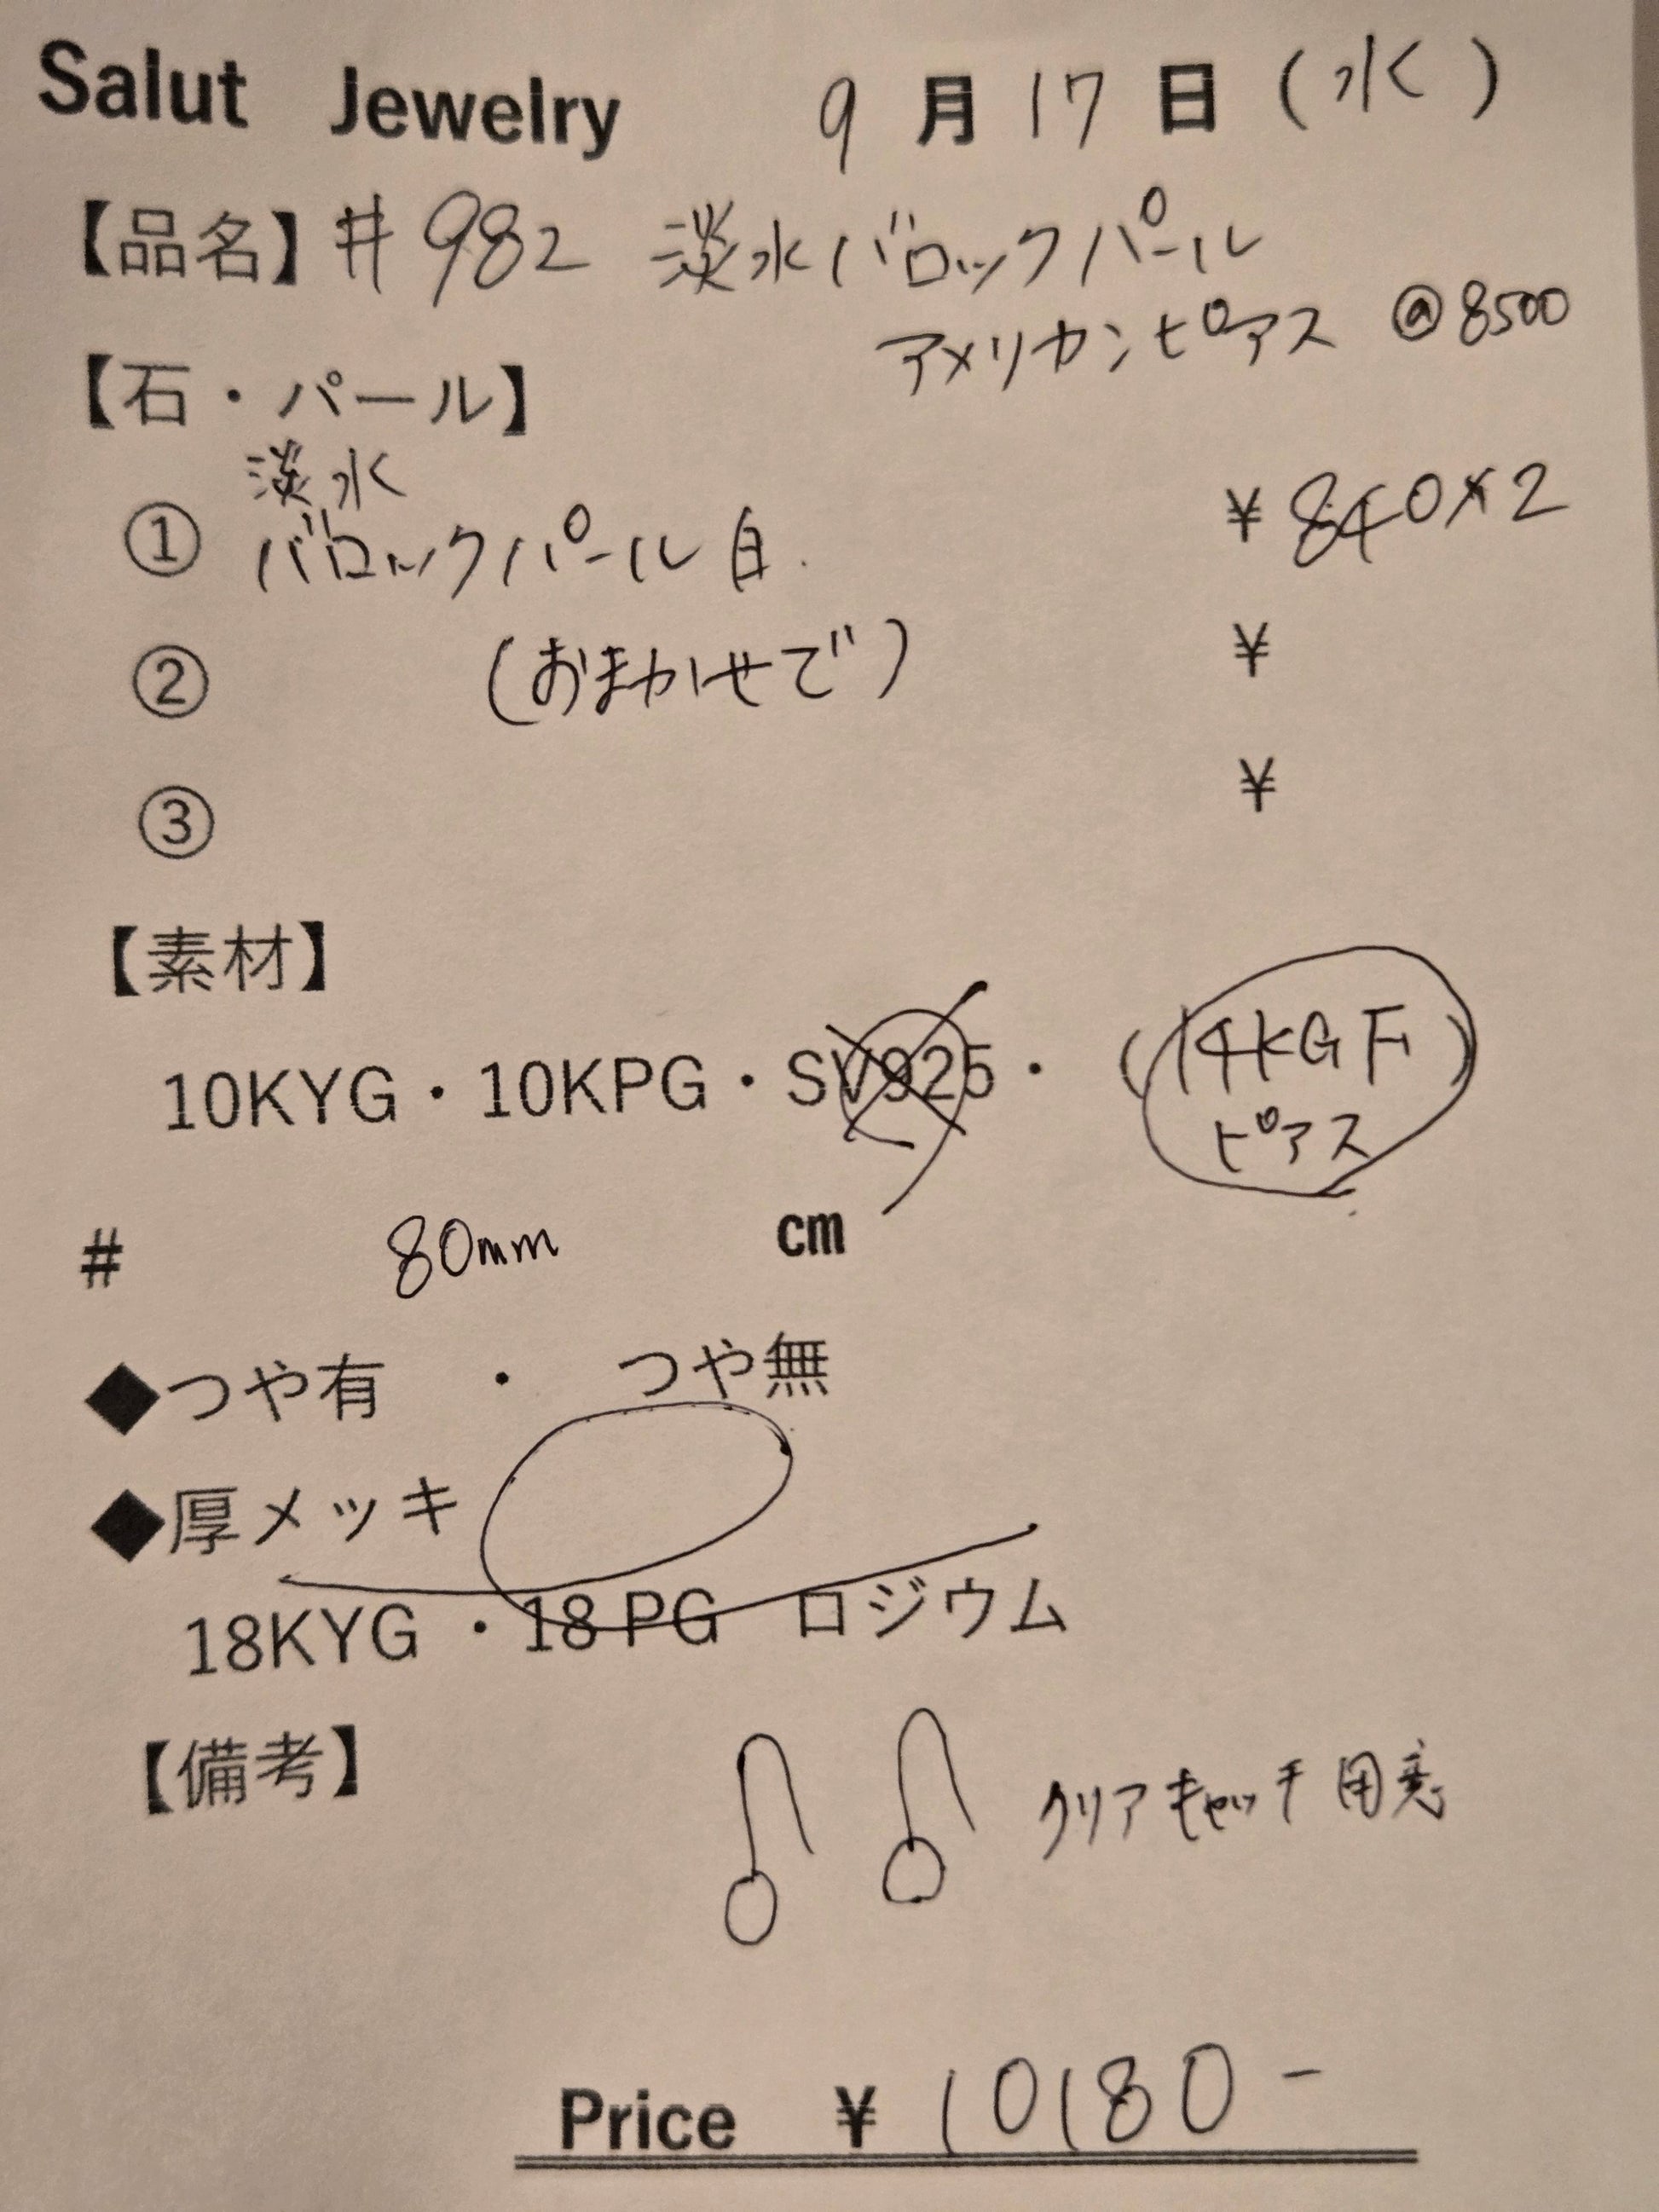 Salut Jewelry 9月17日(水)
【品名】#982 淡水バロックパール
アメリカンピアス @8500
【石・パール】
淡水
① バロックパール白 ¥840×2
② (おまかせで) ¥
③ ¥
【素材】
10KYG・10KPG・SV925・(14KGF)
ピアス
# 80mm cm
◆つや有 ・ つや無
◆厚メッキ
18KYG ・18 PG ロジウム
【備考】
クリアキャッチ用意
Price ¥10180-